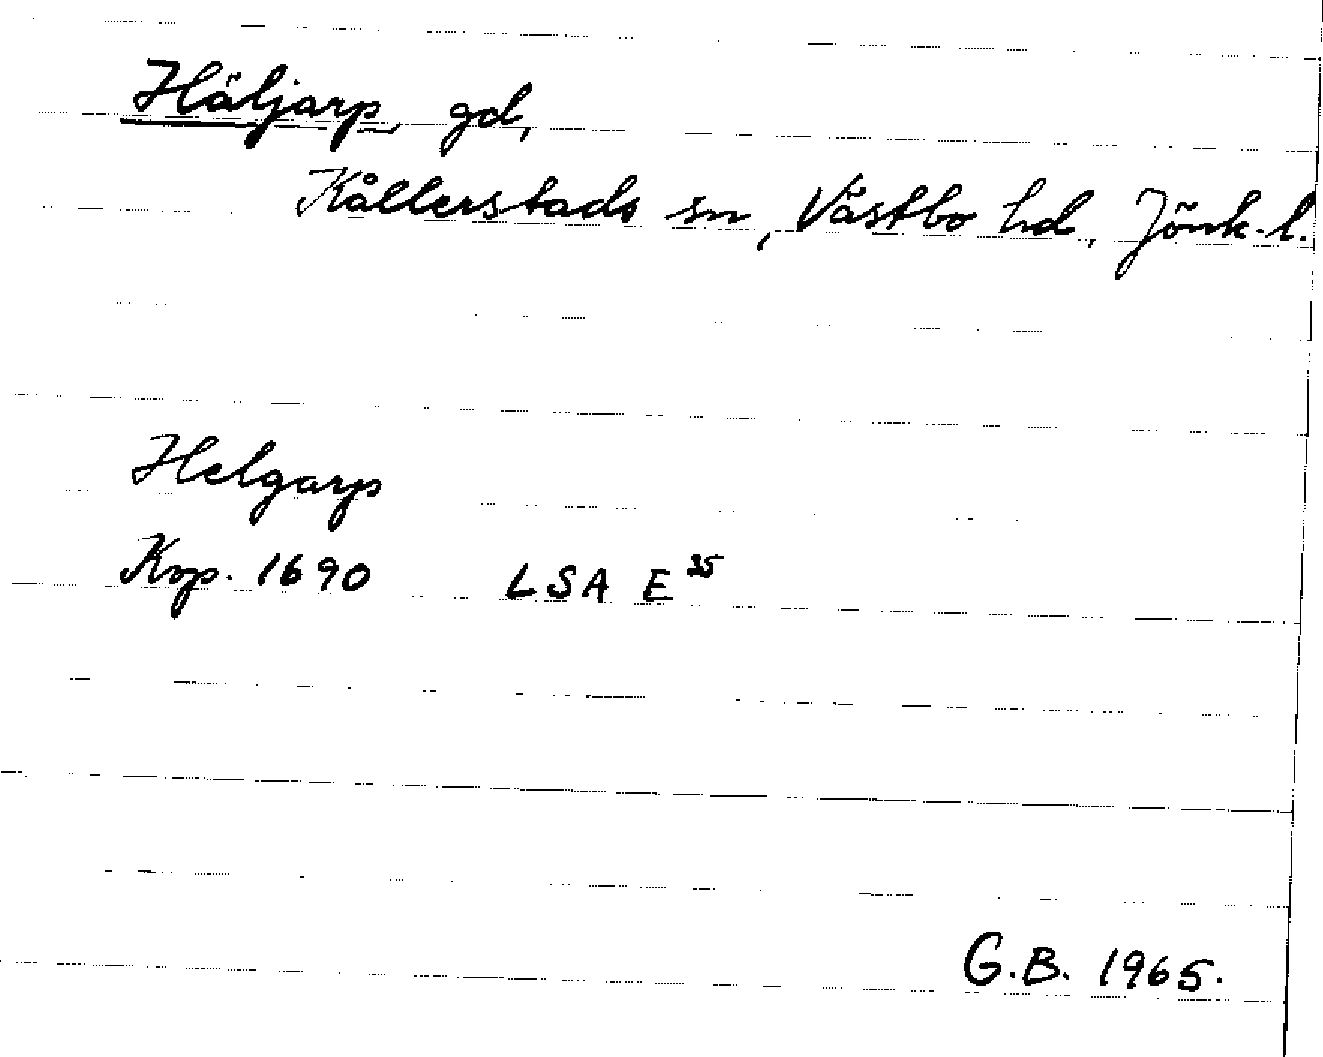 Häljarp, gd,
Kållerstads sn, Västbo hd, Jönk. l.
Helgarp
Krp. 1690 LSA E 35
G.B. 1965.